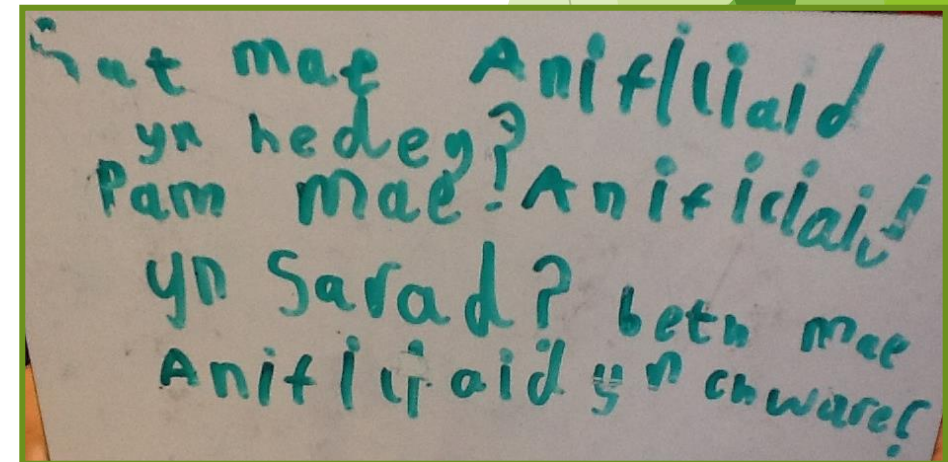 Sut mae Anifliiaid
yn hedeg?
Pam mae! Anificiaid
yn Sarad? beth mae
Anifliiaid yn chware?